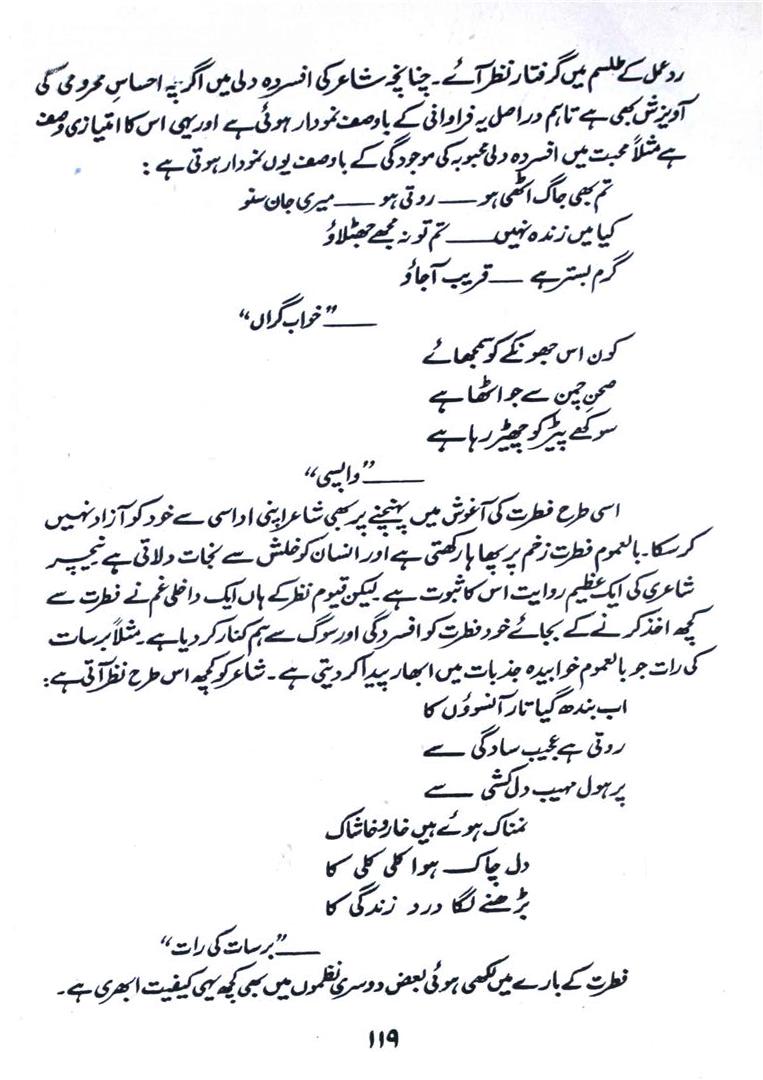 رد عمل کے طلسم میں گرفتار نظر آئے۔ چنانچہ شاعر کی افسردہ دلی میں اگر یہ احساسِ محرومی کی
آویزش بھی ہے تاہم دراصل یہ فراوانی کے باوصف نمودار ہوئی ہے اور یہی اس کا امتیازی وصف
ہے مثلاً محبت میں افسردہ دلی محبوبہ کی موجودگی کے باوصف یوں نمودار ہوتی ہے :
تم بھی جاگ اٹھی ہو ——— روتی ہو ——— میری جان سنو
کیا میں زندہ نہیں ——— تم تو نہ مجھے جھٹلاؤ
گرم بستر ہے ——— قریب آجاؤ
——— "خواب گراں"
کون اس جھونکے کو سمجھائے
صحنِ چمن سے جو اٹھا ہے
سوکھے پیڑ کو چھیڑ رہا ہے
——— "واپسی"
اسی طرح فطرت کی آغوش میں پہنچنے پر بھی شاعر اپنی اداسی سے خود کو آزاد نہیں
کر سکا۔ بالعموم فطرت زخم پر پھاہا رکھتی ہے اور انسان کو خلش سے نجات دلاتی ہے نیچر
شاعری کی ایک عظیم روایت اس کا ثبوت ہے۔ لیکن قیوم نظر کے ہاں ایک داخلی غم نے فطرت سے
کچھ اخذ کرنے کے بجائے خود فطرت کو افسردگی اور سوگ سے ہم کنار کر دیا ہے۔ مثلاً برسات
کی رات جو بالعموم خوابیدہ جذبات میں ابھار پیدا کر دیتی ہے۔ شاعر کو کچھ اس طرح نظر آتی ہے:
اب بندھ گیا تار آنسوؤں کا
روتی ہے عجیب سادگی سے
پرہول مہیب دل کشی سے
نمناک ہوئے ہیں خار و خاشاک
دل چاک ہوا کلی کلی کا
بڑھنے لگا درد زندگی کا
——— "برسات کی رات"
فطرت کے بارے میں لکھی ہوئی بعض دوسری نظموں میں بھی کچھ یہی کیفیت ابھری ہے۔
۱۱۹